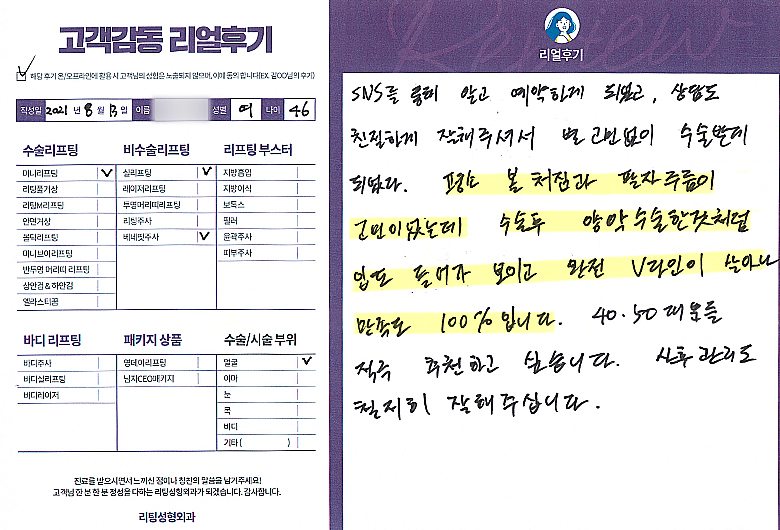 고객감동 리얼후기
해당 후기 온/오프라인에 활용 시 고객님의 성함은 노출되지 않으며, 이에 동의 합니다(EX. 김OO님의 후기)
작성일 2021 년 8 월 13 일 이름 성별 여 나이 46
수술리프팅
미니리프팅
리팅풀거상
리팅M리프팅
안면거상
볼턱리프팅
미니브이리프팅
반투명 머리띠 리프팅
상안검 & 하안검
엘라스티꿈
비수술리프팅
실리프팅
레이저리프팅
투명머리띠리프팅
리팅주사
베네핏주사
리프팅 부스터
지방흡입
지방이식
보톡스
필러
윤곽주사
피부주사
바디 리프팅
바디주사
바디실리프팅
바디레이저
패키지 상품
영테이리프팅
남자CEO패키지
수술/시술 부위
얼굴
이마
눈
목
바디
기타 ( )
진료를 받으시면서 느끼신 점이나 칭찬의 말씀을 남겨주세요!
고객님 한 분 한 분 정성을 다하는 리팅성형외과가 되겠습니다. 감사합니다.
리팅성형외과
Review
리얼후기
SNS를 통해 알고 예약하게 되었고, 상담도
친절하게 잘해주셔서 별 고민없이 수술받게
되었다. 평소 볼 처짐과 팔자주름이
고민이었는데 수술후 양악수술한것처럼
입도 들어가 보이고 완전 V라인이 살아나
만족도 100%입니다. 40·50대분들
적극 추천하고 싶습니다. 사후관리도
철저히 잘해주십니다.